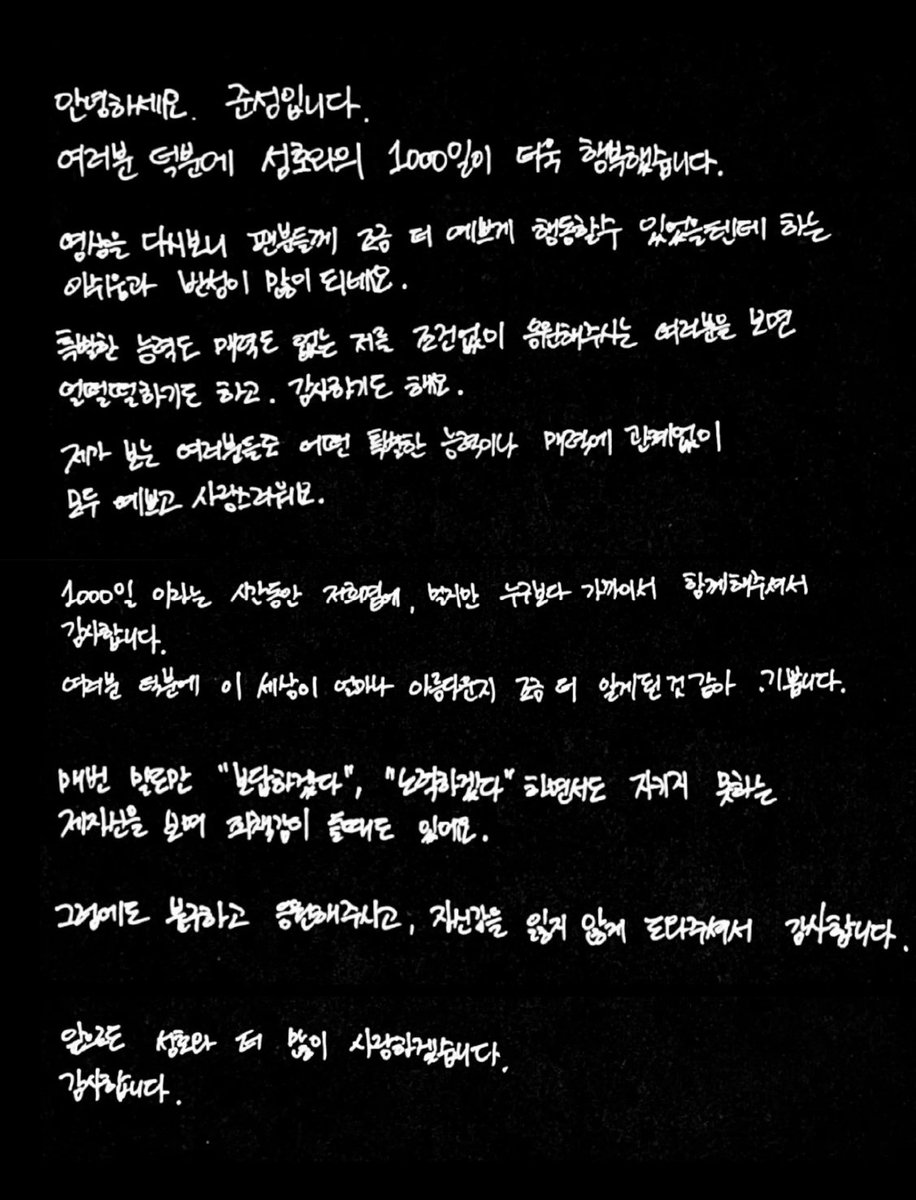 안녕하세요. 준성입니다.
여러분 덕분에 성호와의 1000일이 더욱 행복했습니다.
영상을 다시보니 팬분들께 조금 더 예쁘게 행동할수 있었을텐데 하는
아쉬움과 반성이 많이 되네요.
특별한 능력도 매력도 없는 저를 조건없이 응원해주시는 여러분을 보면
얼떨떨하기도 하고. 감사하기도 해요.
제가 보는 여러분들도 어떤 특별한 능력이나 매력에 관계없이
모두 예쁘고 사랑스러워요.
1000일 이라는 시간동안 저희옆에, 멀지만 누구보다 가까이서 함께해주셔서
감사합니다.
여러분 덕분에 이 세상이 얼마나 아름다운지 조금 더 알게된것 같아 .기쁩니다.
매번 말로만 "보답하겠다", "노력하겠다" 하면서도 지키지 못하는
제자신을 보며 죄책감이 들때도 있어요.
그럼에도 불구하고 응원해주시고, 자신감을 잃지 않게 도와주셔서 감사합니다.
앞으로도 성호와 더 많이 사랑하겠습니다.
감사합니다.